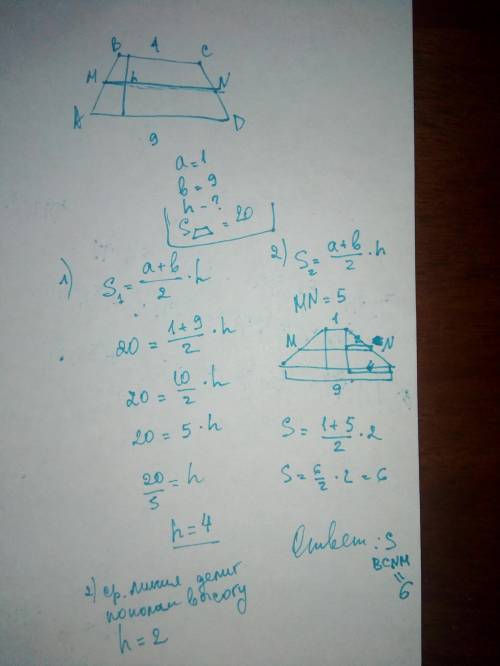 B 1 C
M h N
A D
9
a=1
b=9
h-?
S = 20
1) S₁ = a+b/2 · h
20 = 1+9/2 · h
20 = 10/2 · h
20 = 5 · h
20/5 = h
h=4
2) ср. линия делит
пополам высоту
h=2
2) S₂ = a+b/2 · h
MN=5
1
M 2 N
4
9
S = 1+5/2 · 2
S = 6/2 · 2 = 6
Ответ: S
BCNM
=
6